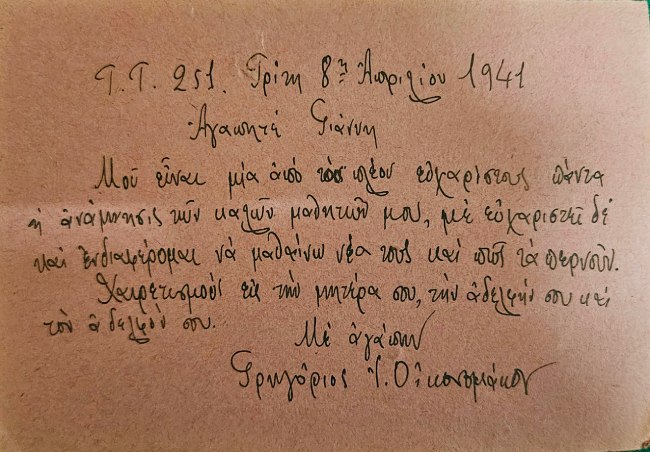 Τ.Τ. 251. Τρίτη 8ῃ Ἀπριλίου 1941
Ἀγαπητέ Γιάννη
Μοῦ εἶναι μία ἀπό τάς πλέον εὐχαρίστους πάντα
ἡ ἀνάμνησις τῶν καλῶν μαθητῶν μου, μέ εὐχαριστεῖ δέ
καί ἐνδιαφέρομαι νά μαθαίνω νέα τους καί πῶς τά περνοῦν.
Χαιρετισμούς εἰς τήν μητέρα σου, τήν ἀδελφήν σου καί
τόν ἀδελφόν σου.
Μέ ἀγάπην
Γρηγόριος Ἰ. Οἰκονομάκου